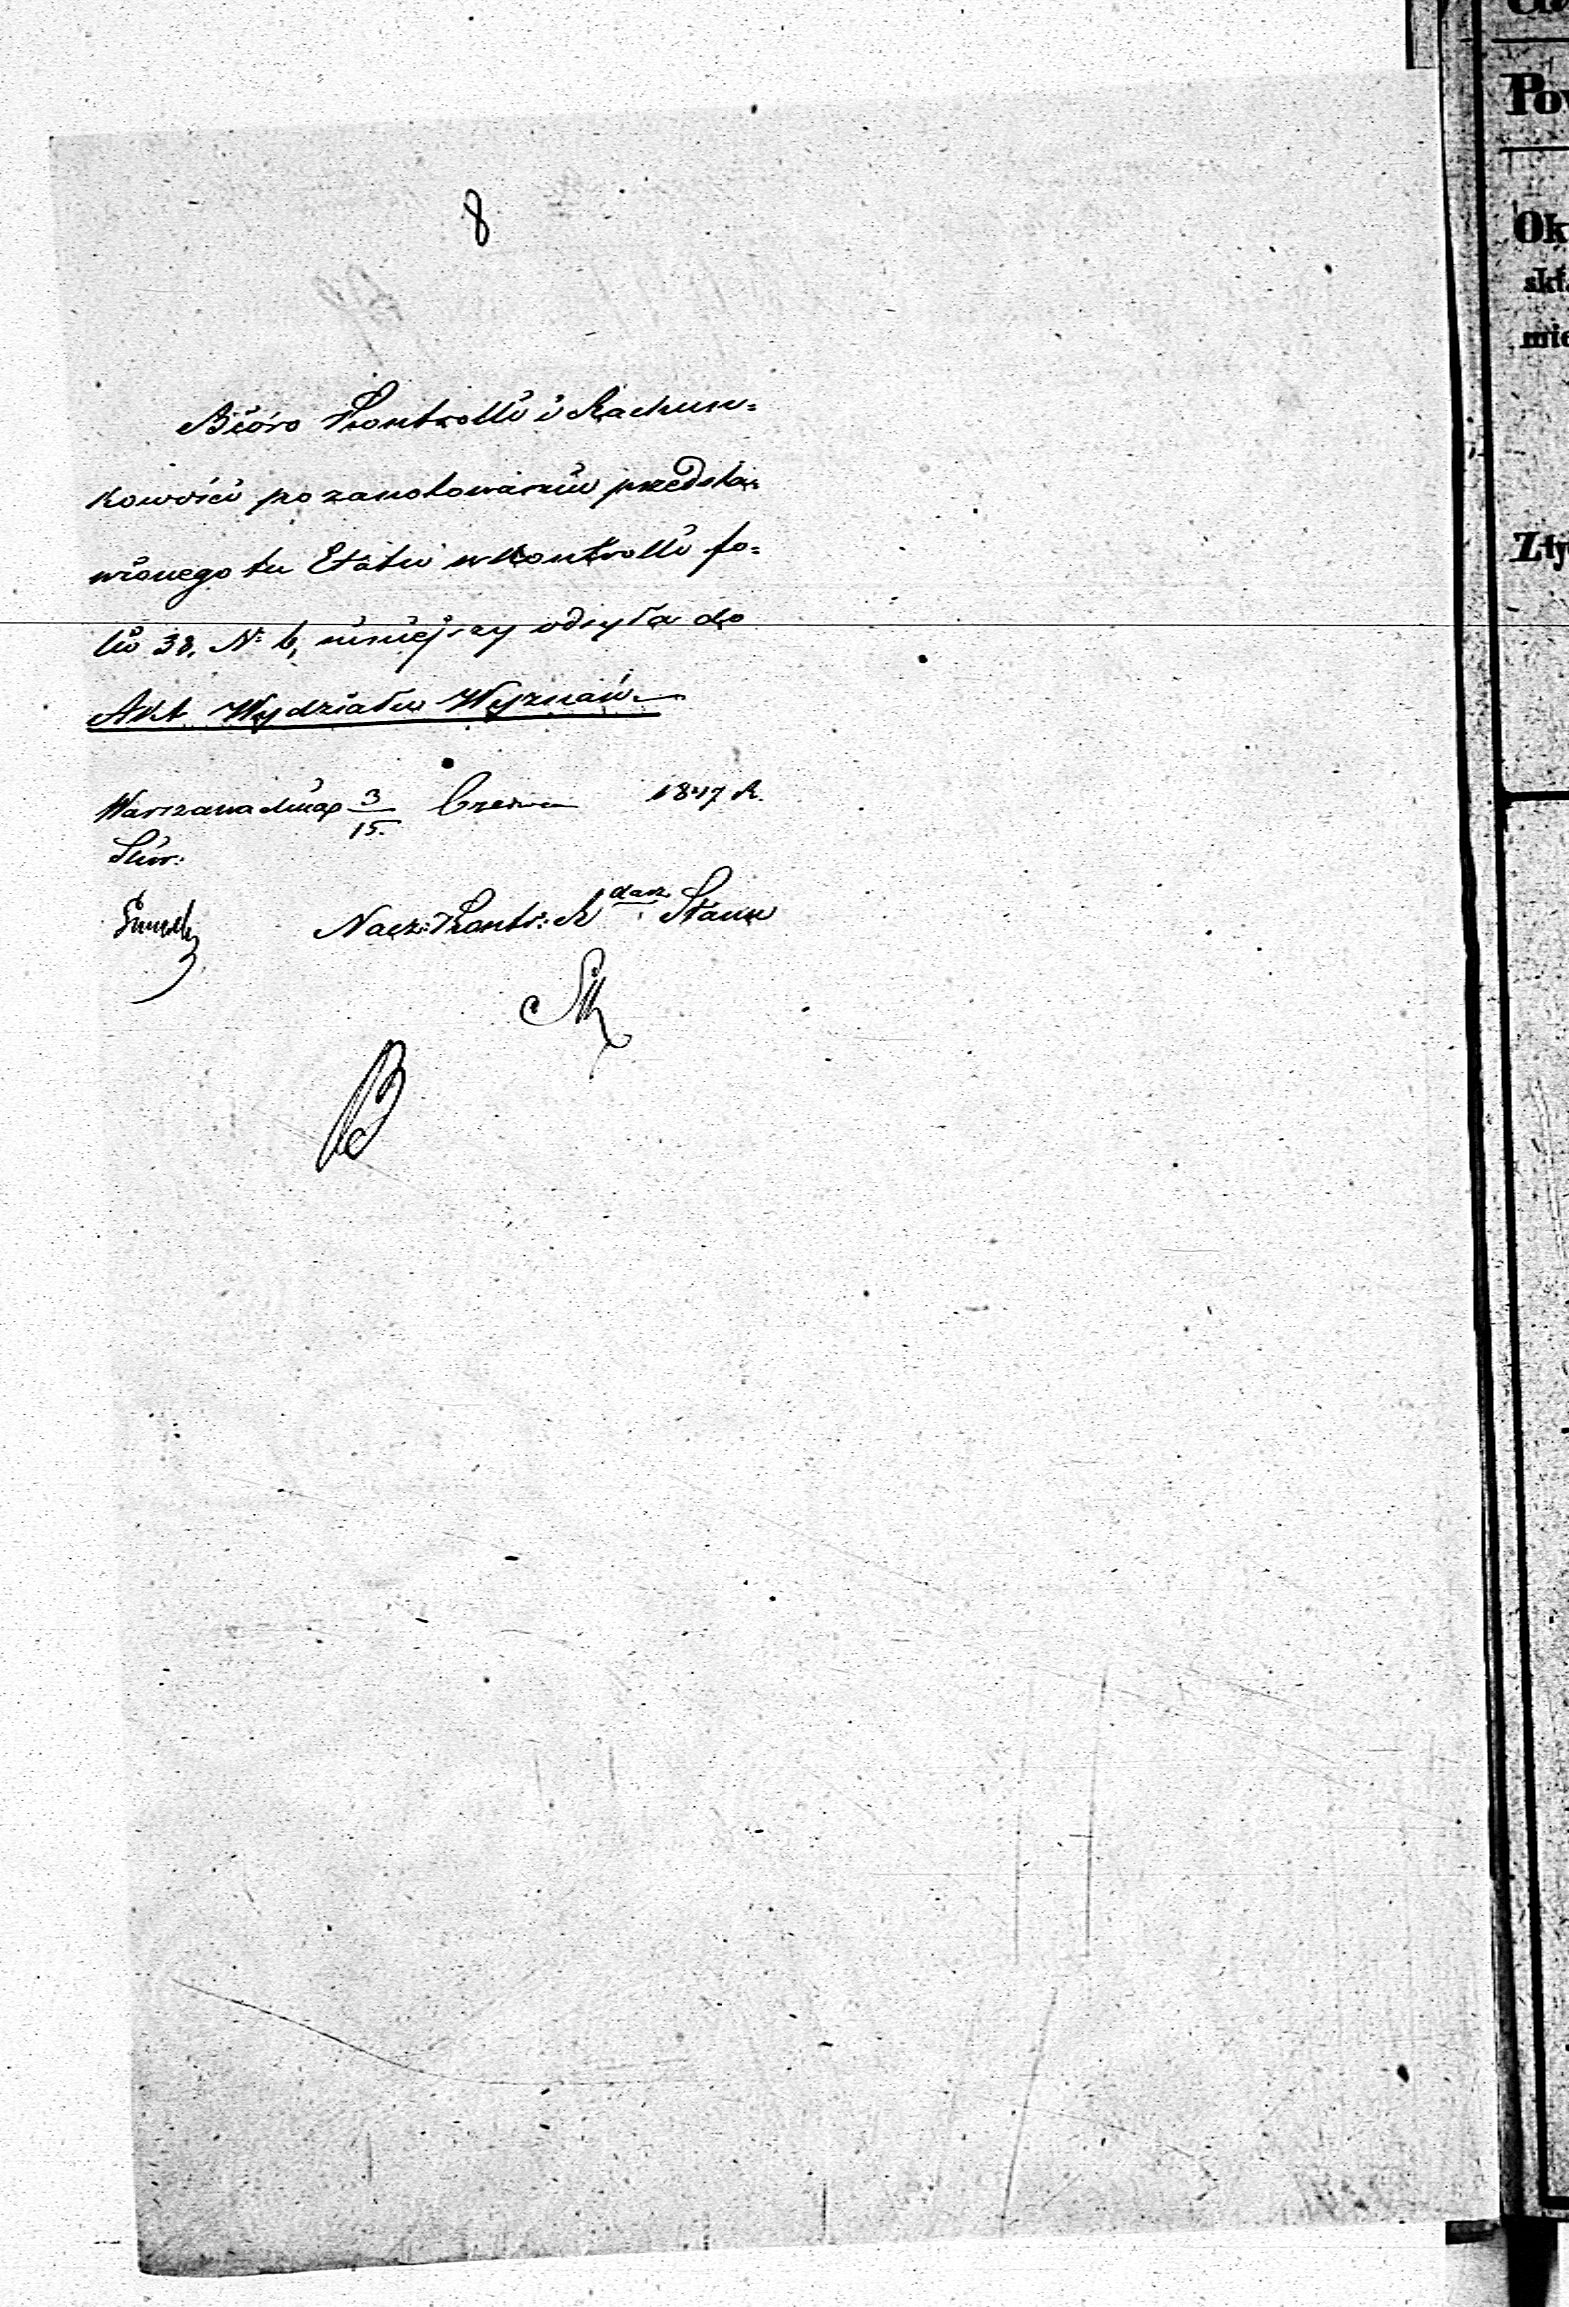 8
Bióro Kontrolli i Rachun=
kowości po zanotowaniu przedsta=
wionego tu Etatu w Kontrolli fo=
lio 38. N: 6, niniejszy odsyła do
Akt Wydziału Wyznań
Warszawa dnia 3/15. Czerwca 1847 R.
Nacz: Kontr: R dca Stanu
Pow
Ok
skła
mie
Zły